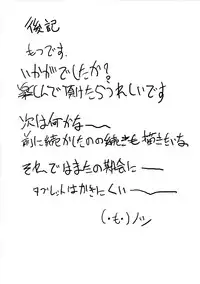 後記
もつです。
いかがでしたか?
楽しんで頂けたらうれしいです
次は何かな〜〜
前に続かしたのの続きも描きたいな。
それではまたの機会に――
タブレットはかきにくい――
(・も・)ノシ